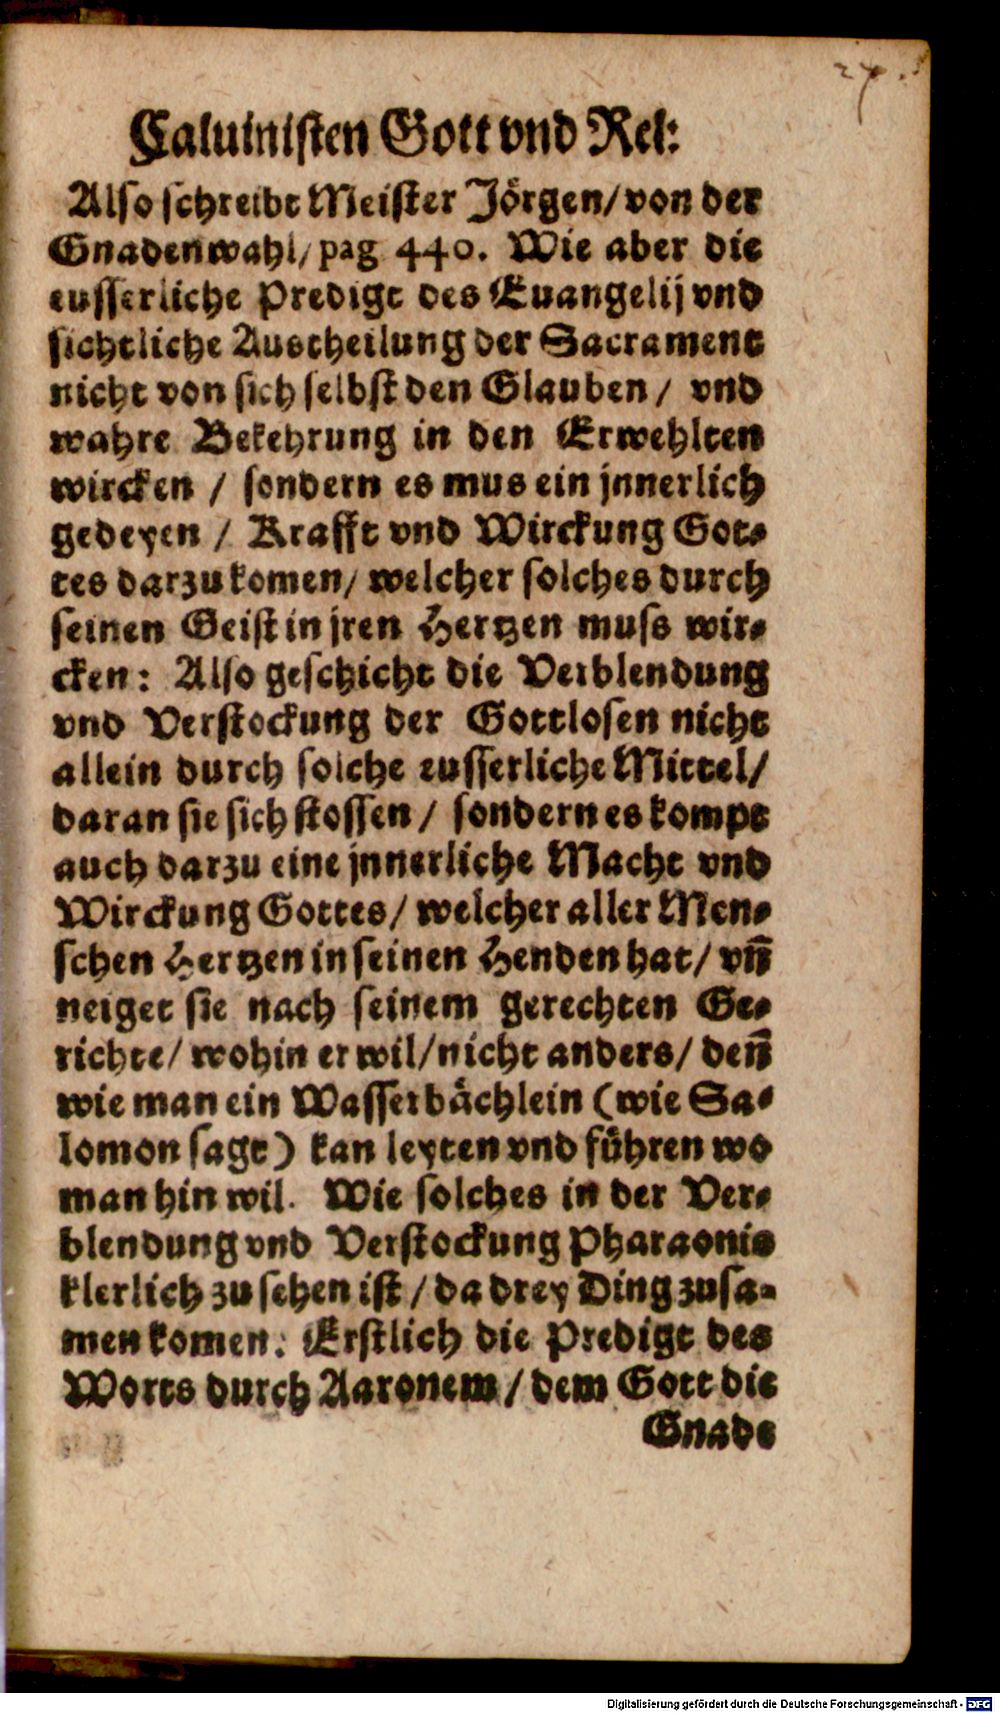 27.
Caluinisten Gott vnd Rel:
Also schreibt Meister Jörgen/ von der
Gnadenwahl/ pag 440. Wie aber die
eusserliche Predigt des Euangelij vnd
sichtliche Austheilung der Sacrament
nicht von sich selbst den Glauben / vnd
wahre Bekehrung in den Erwehlten
wircken / sondern es mus ein jnnerlich
gedeyen / Krafft vnd Wirckung Got-
tes darzu komen/ welcher solches durch
seinen Geist in jren Hertzen muss wir-
cken: Also geschicht die Verblendung
vnd Verstockung der Gottlosen nicht
allein durch solche eusserliche Mittel/
daran sie sich stossen / sondern es kompt
auch darzu eine jnnerliche Macht vnd
Wirckung Gottes/ welcher aller Men-
schen Hertzen in seinen Henden hat/ vn̄
neiget sie nach seinem gerechten Ge-
richte/ wohin er wil/ nicht anders/ den̄
wie man ein Wasserbächlein (wie Sa-
lomon sagt) kan leyten vnd führen wo
man hin wil. Wie solches in der Ver-
blendung vnd Verstockung Pharaonis
klerlich zu sehen ist / da drey Ding zusa-
men komen: Erstlich die Predigt des
Worts durch Aaronem / dem Gott die
Gnade
Digitalisierung gefördert durch die Deutsche Forschungsgemeinschaft - DFG